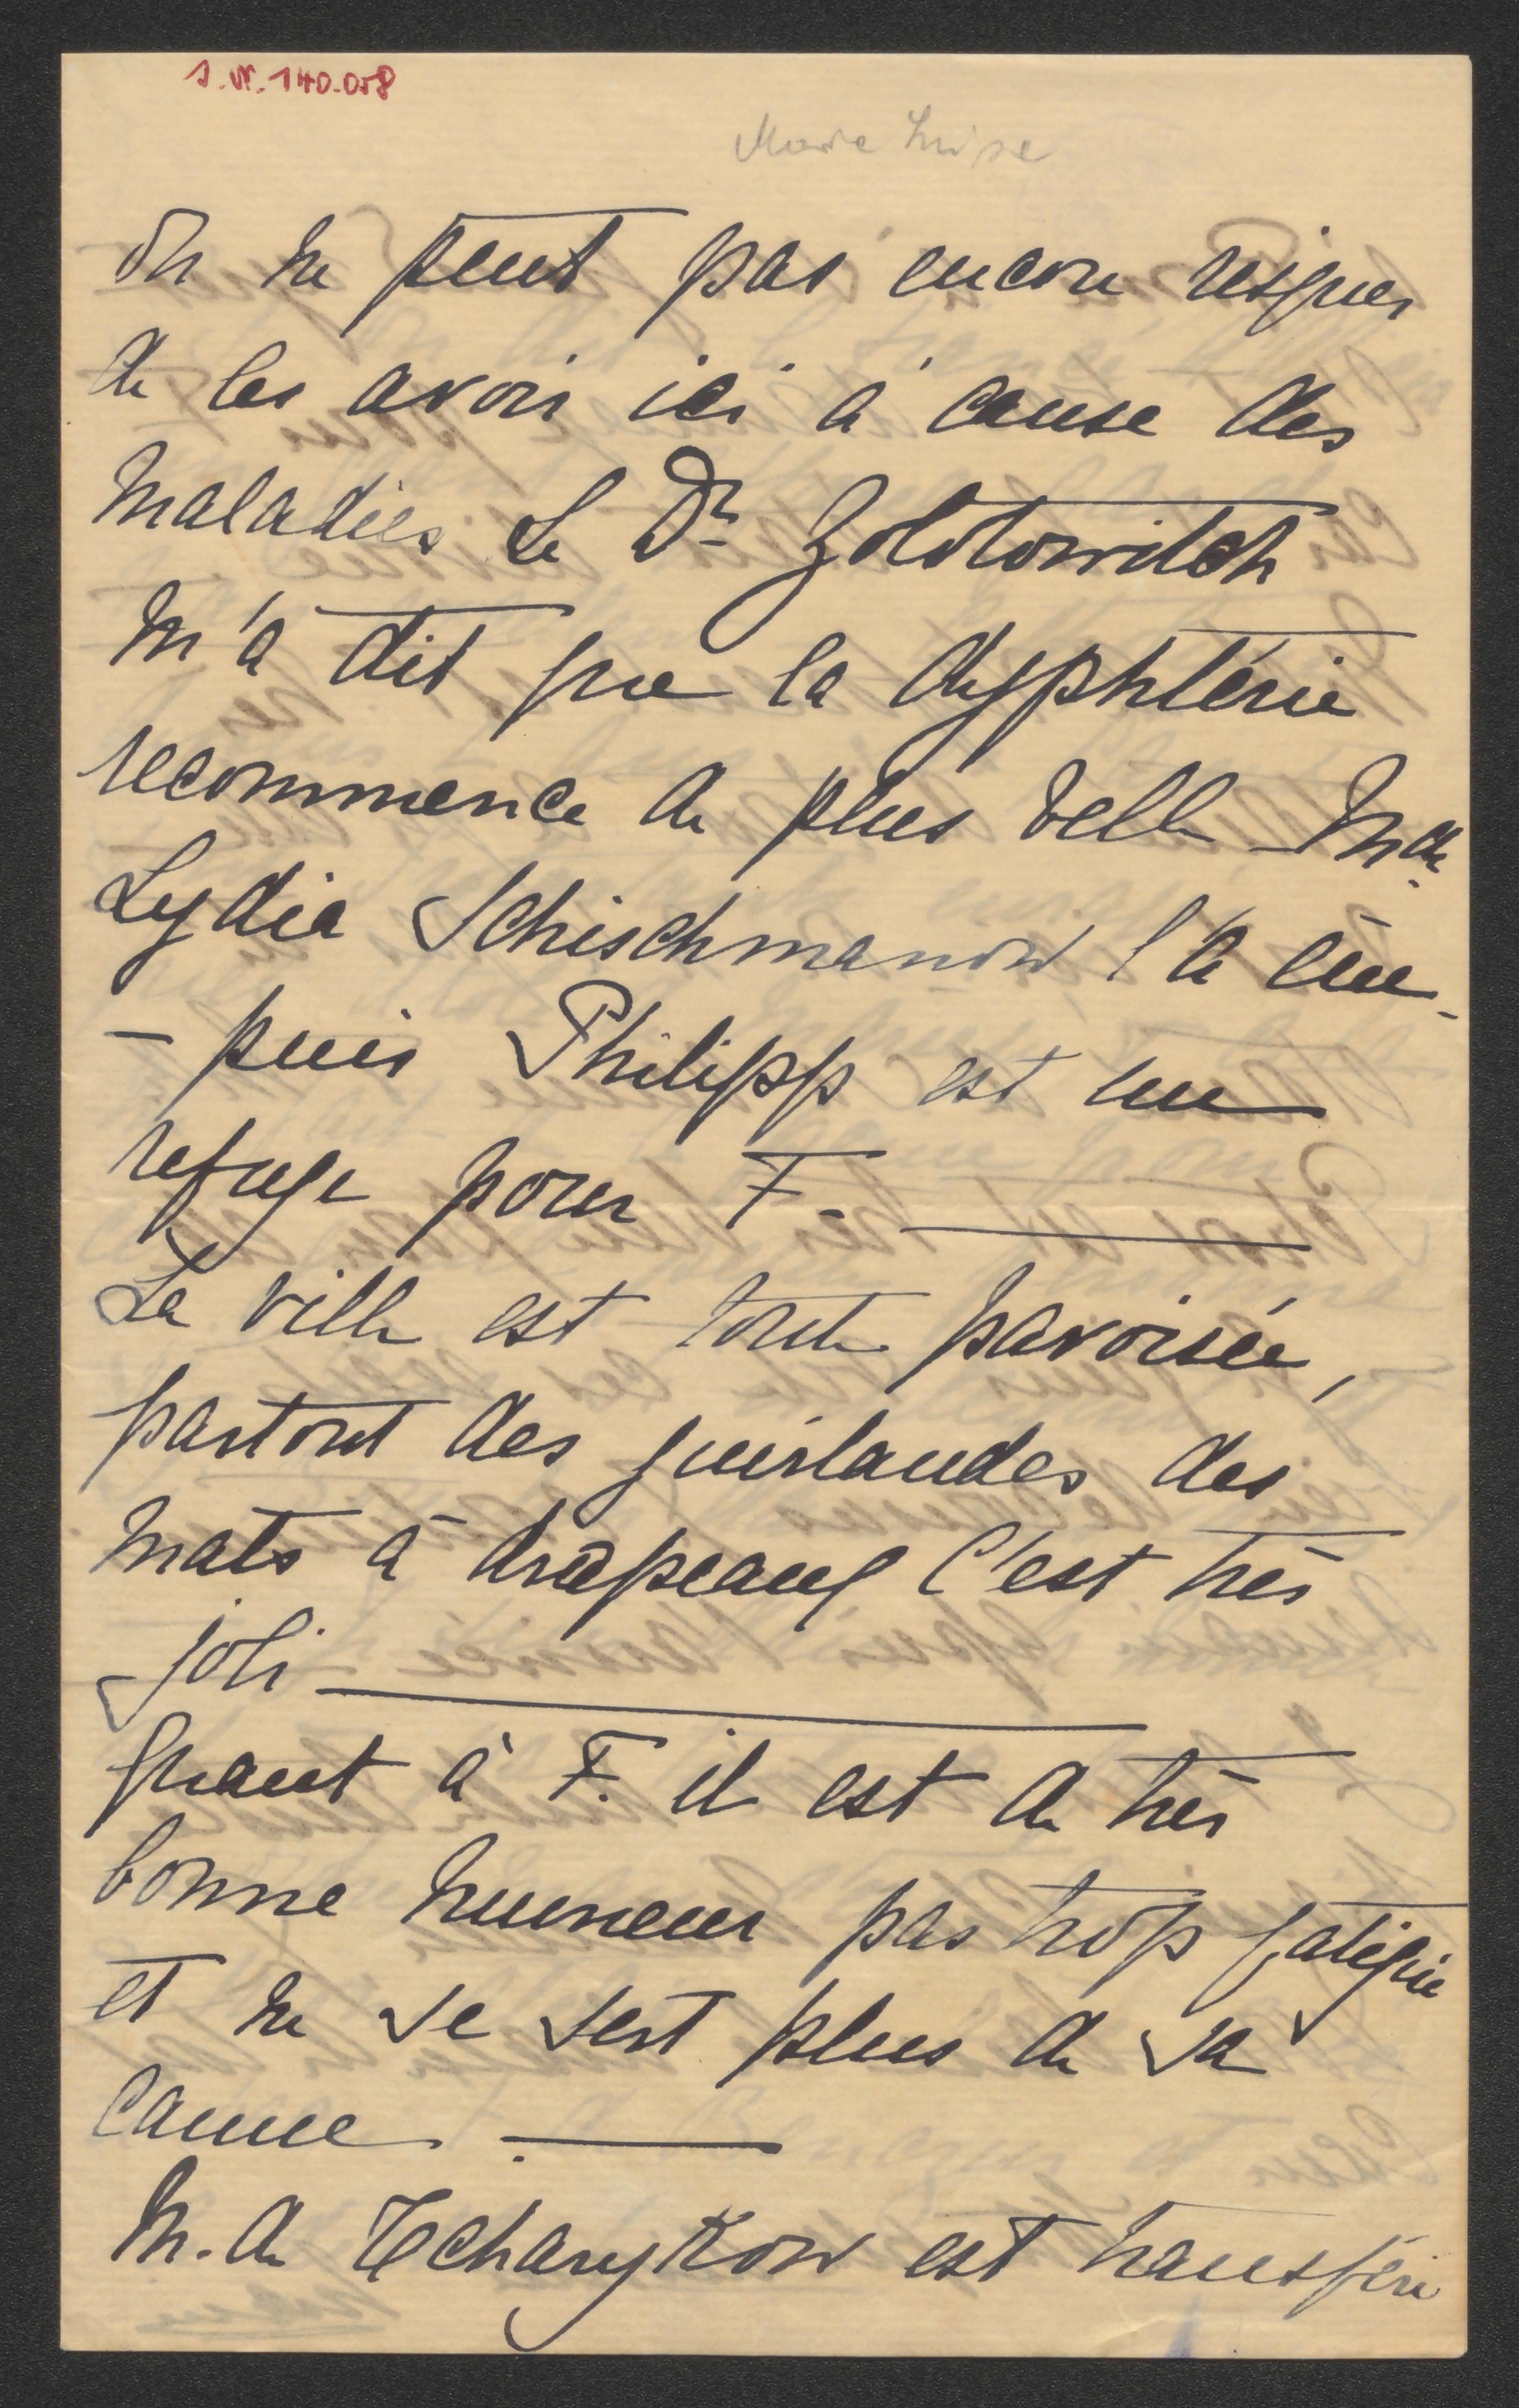 I.N. 140.058
Marie Luise
On ne peut pas encore risquer
de les avoir ici à cause des
maladies Le Dr Zolotowitch
m'a dit que la dyphtérie
recommence de plus belle – Mde
Lydia Schischmanow l'a eue –
– puis Philipp est un
refuge pour F. –
La ville est toute pavoisée,
partout des guirlandes des
mats à drapeaux c'est très
joli –
Quant à F. il est de très
bonne humeur pas trop fatigué
et ne se sert plus de sa
canne. –
M. de Tcharykow est transféré